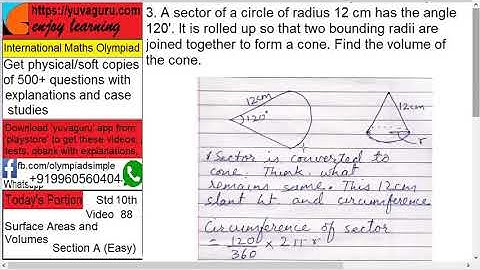 https://yuvaguru.com
enjoy learning
International Maths Olympiad
Get physical/soft copies
of 500+ questions with
explanations and case
studies
Download 'yuvaguru' app from
'playstore' to get these videos,
tests, qbank with explanations,
fb.com/olympiadsimple
Whatsapp
+919960560404
Today's Portion
Std 10th
Video 88
Surface Areas and
Volumes
Section A (Easy)
3. A sector of a circle of radius 12 cm has the angle
120'. It is rolled up so that two bounding radii are
joined together to form a cone. Find the volume of
the cone.
12cm
120°
12cm
r
Sector is converted to
cone. Think what
remains same. This 12cm
slant ht and circumference
Circumference of sector
= 120/360 × 2πr